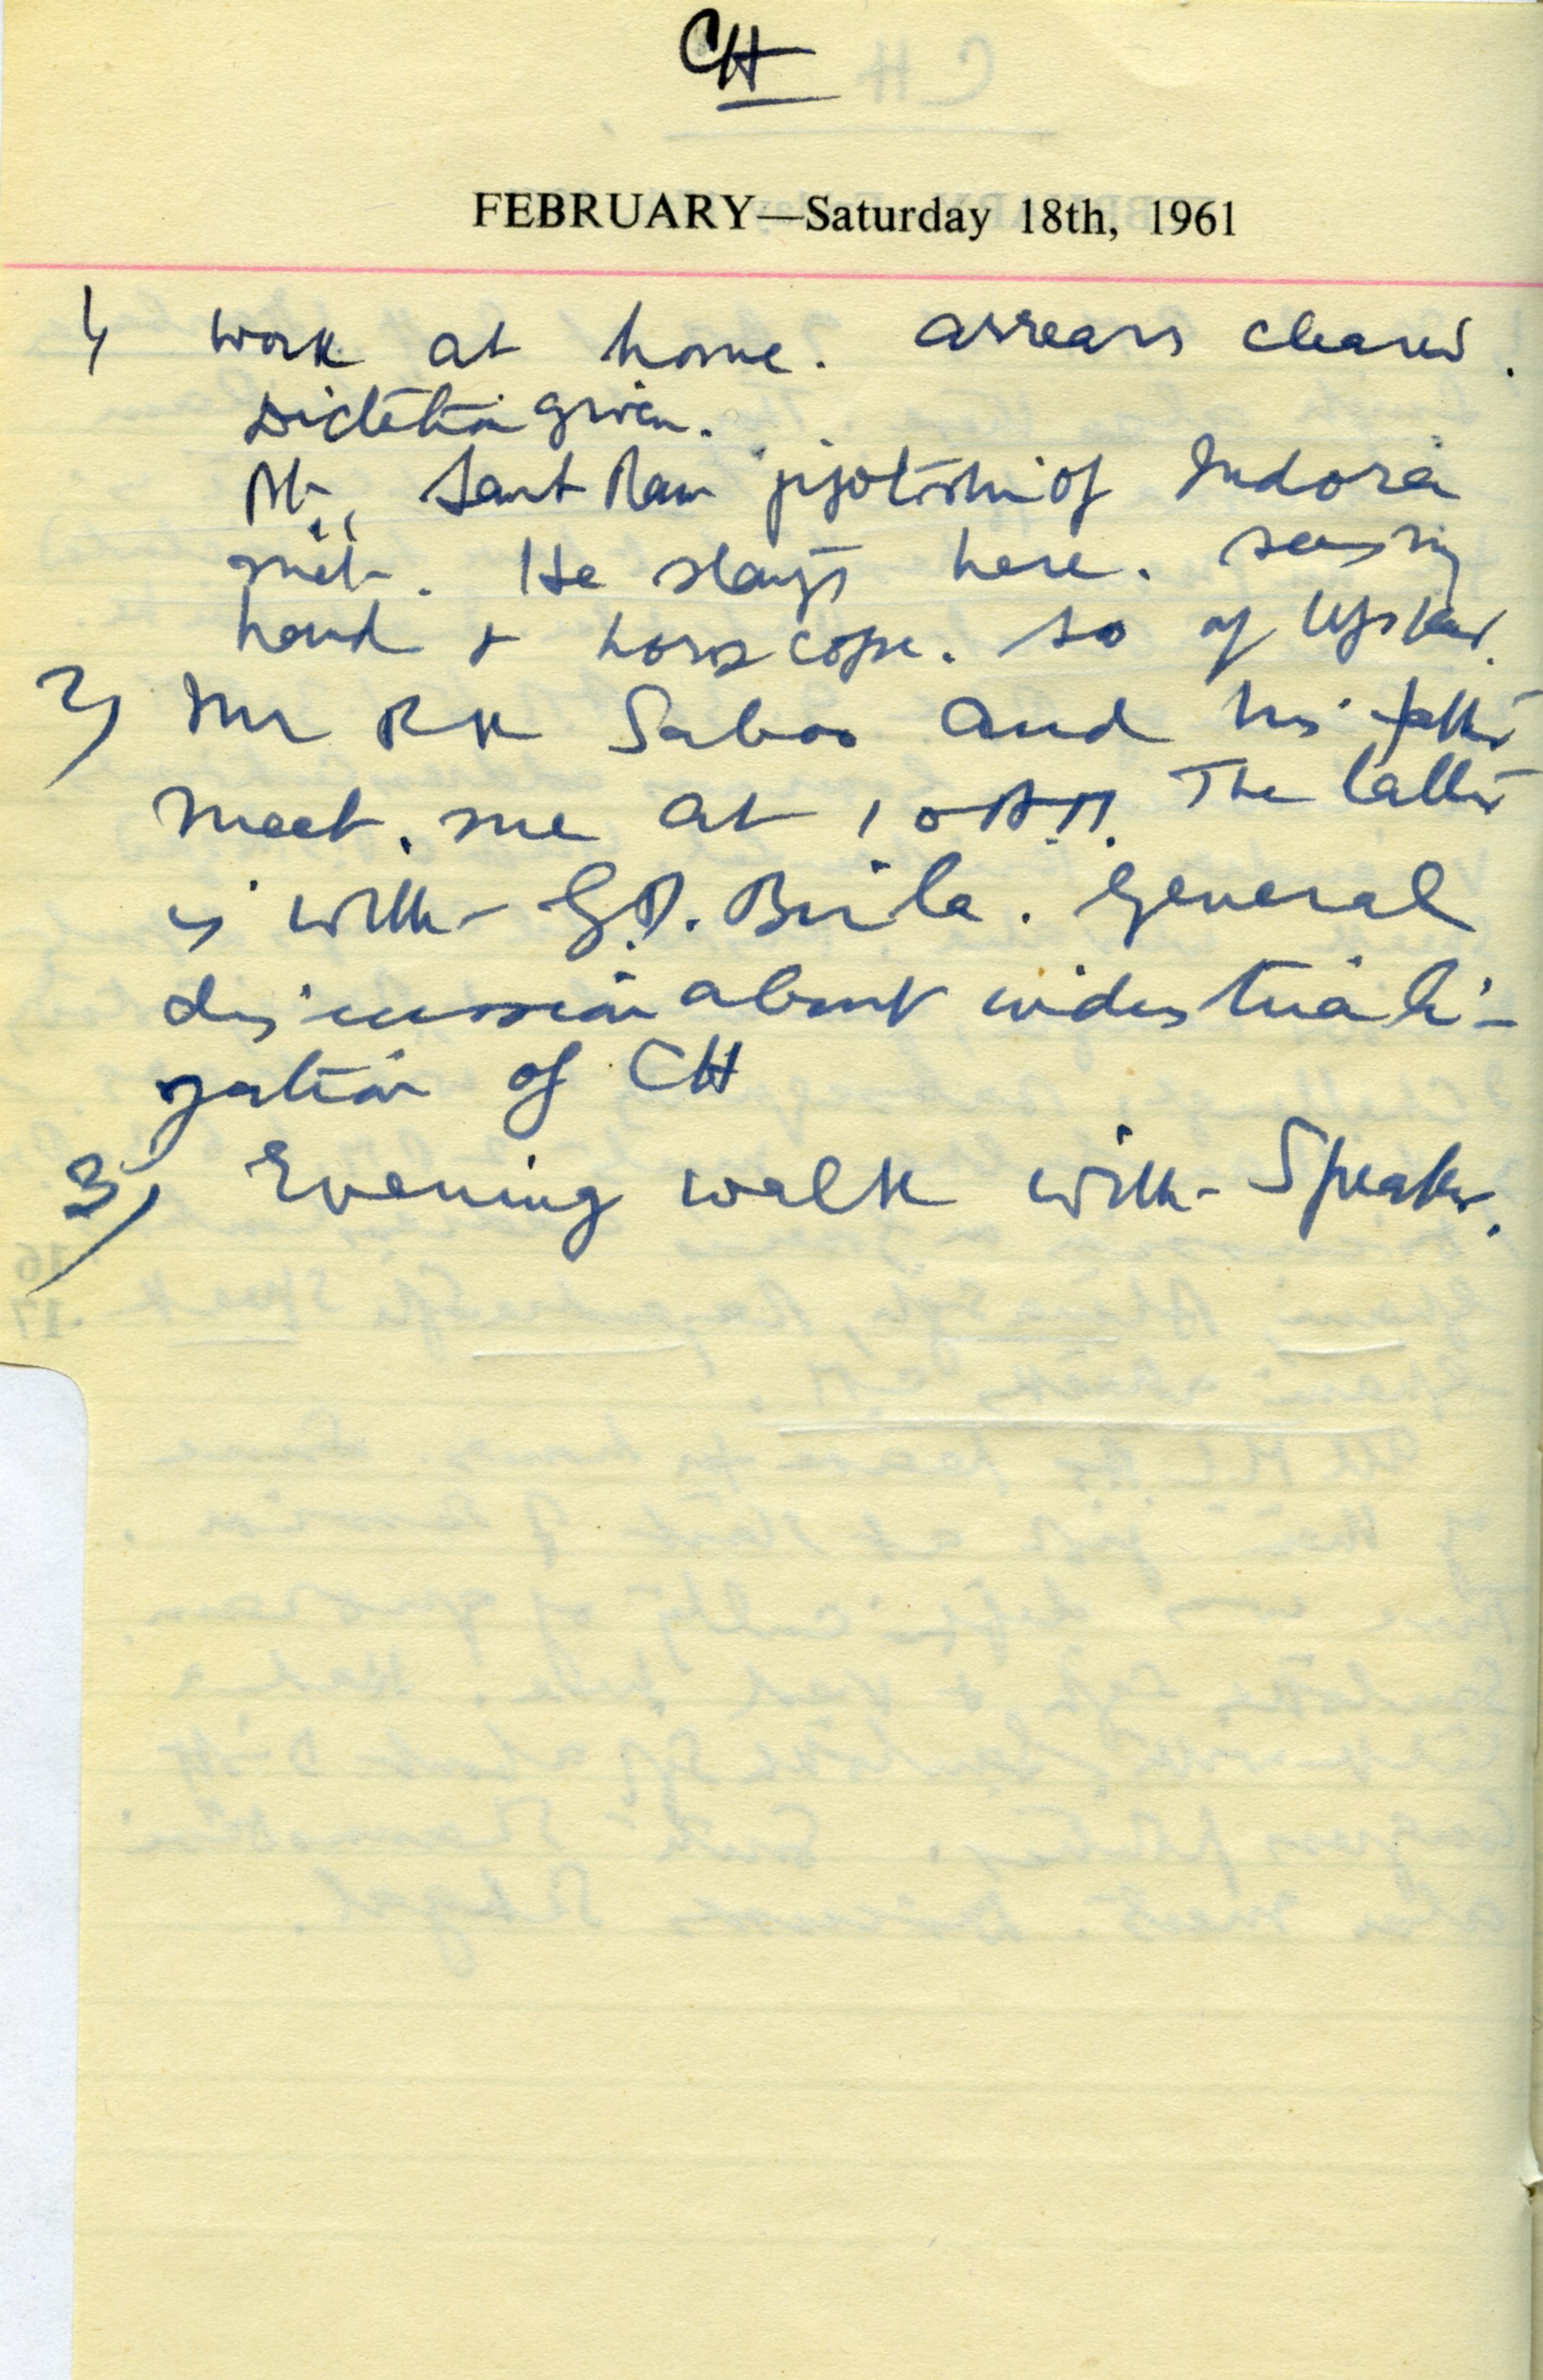 CH
FEBRUARY—Saturday 18th, 1961
1) Work at home. Arrears cleared.
Dictation given.
Pt. Sant Ram jyotishi of Indora
met. He stays here. seeing
hand & horoscope. so of
2) Mr RK Saboo and his father
meet me at 10 A.M. The latter
is with G.D. Birla. General
discussion about industriali-
zation of CH
3) Evening walk with Speaker.